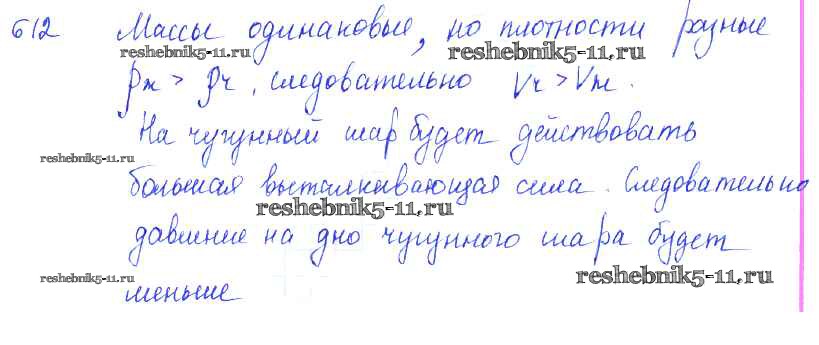 612 Массы одинаковые, но плотности разные
reshebnik5-11.ru reshebnik5-11.ru
ρж > ρч, следовательно Vч > Vж.
На чугунный шар будет действовать
reshebnik5-11.ru
большая выталкивающая сила. Следовательно
reshebnik5-11.ru
давление на дно чугунного шара будет
reshebnik5-11.ru reshebnik5-11.ru
меньше